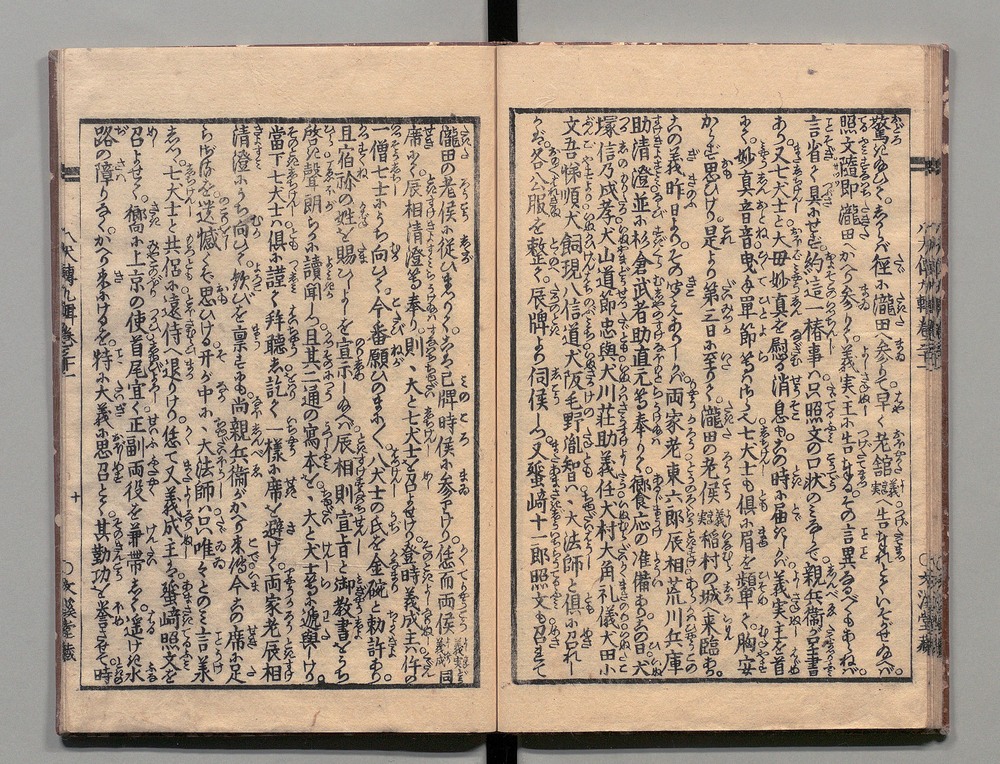 驚きたまひて。しからバ径に瀧田へ参りて早く老舘義実に告まうしねといそがせ給へバ。
照文随即瀧田へかへり参りて義実王に告まうすにその言異なるべくもあらねバ。
言省きて具にせず。約這一椿事ハ只照文の口状のミならで親兵衛の呈書
あり。又七犬士と大母妙真を慰る消息も。この時に届しかバ義実王を首
にて。妙真音音曳手単節等ハさらへ七犬士も倶に眉を顰めて胸安
からずぞ思ひける。是より第三日に至りて瀧田の老侯義実稲村の城へ来臨あり。
この義昨日より。その聞えありしかバ両家老東六郎辰相荒川兵庫
助清澄並に杉倉武者助直元等奉りて饗応の准備あり。この日犬
塚信乃戌孝犬山道節忠與犬川荘助義任犬村大角礼儀犬田小
文吾悌順犬飼現八信道犬阪毛野胤智ハ、大法師と倶に召れし
かバ。各公服を整て。辰牌より伺侯しつ。又蜑崎十一郎照文も召されて
瀧田の老侯に従ひまつりて。こも已牌時侯に参りけり。恁而両侯義実義成同
席にて辰相清澄等奉り。則、大と七犬士を召よせて登時義成主件の
一僧七犬士にうち向ひて。今番願ひのまにまに八犬士の氏を金碗と勅許あり。
且宿祢の姓を賜ひしよしを宣示し給へバ辰相則宣旨と御教書をうち
啓き聲朗らかに讀聞しつ。且其二通の寫本を、大と犬士等に逓與しけり。
當下七犬士ハ倶に謹て拜聴し訖りて一様に席を避けて両家老辰相
清澄にうち向ひて歓びを稟すも。尚親兵衛がかへり来ざれバ今この席に足
らざるを遺憾くぞ思ひける。开が中に、大法師ハ只唯々とのミ言承
しつ。七犬士と共侶に遠侍へ退りけり。恁て又義成主ハ蜑崎照文を
召よせて。嚮に上京の使首尾宜く正副両役を兼帯して。遥けき水
路の障りなく。かへり来にけるを。特に大義に思召とて。其勤功を誉させて時
八犬傳九輯巻三十一
十
○文溪堂藏